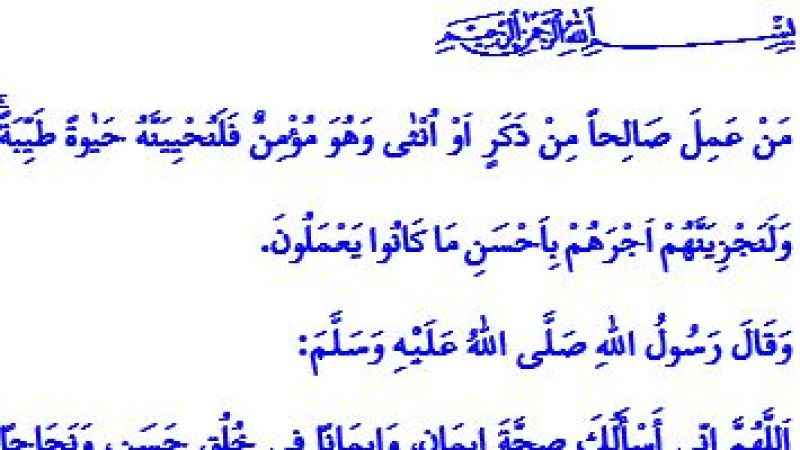 بِسْمِ اللهِ الرَّحْمٰنِ الرَّحِيمِ
مَنْ عَمِلَ صَالِحاً مِنْ ذَكَرٍ اَوْ اُنْثٰى وَهُوَ مُؤْمِنٌ فَلَنُحْيِيَنَّهُ حَيٰوةً طَيِّبَةًۚ
وَلَنَجْزِيَنَّهُمْ اَجْرَهُمْ بِاَحْسَنِ مَا كَانُوا يَعْمَلُونَ.
وَقَالَ رَسُولُ اللهِ صَلَّى اللهُ عَلَيْهِ وَسَلَّمَ:
اَللَّهُمَّ اِنِّى أَسْأَلُكَ صِحَّةَ اِيمَانٍ، وَاِيمَانًا فِى خُلُقٍ حَسَنٍ، وَنَجَاحًا